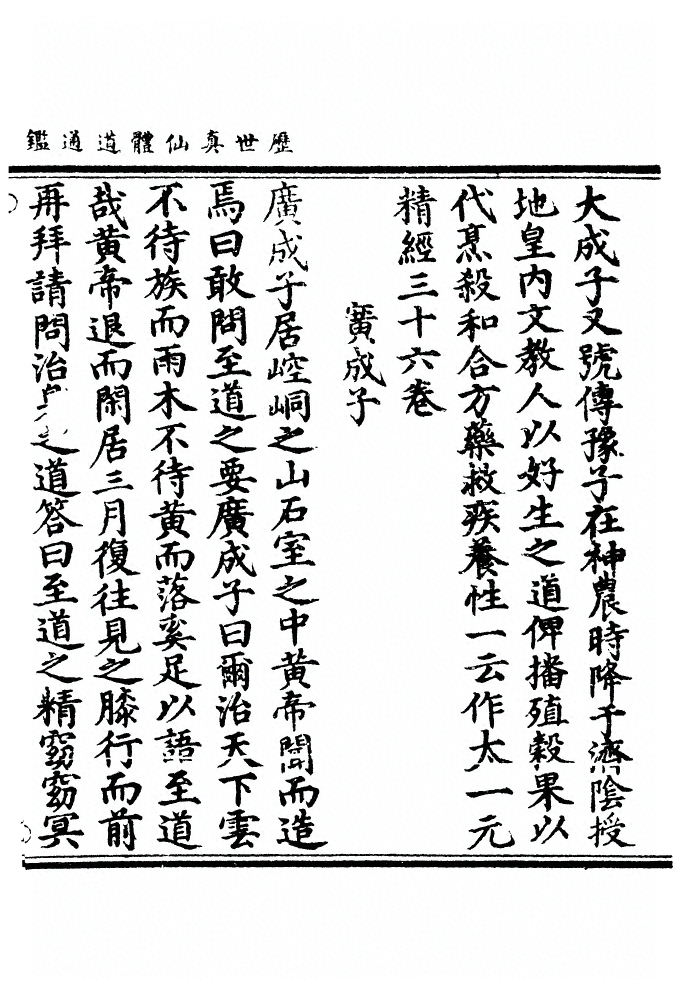 歷世真仙體道通鑑
大成子又號傳豫子在神農時降于濟陰授
地皇內文教人以好生之道俾播殖穀果以
代烹殺和合方藥救疾養性一云作太一元
精經三十六卷
廣成子
廣成子居崆峒之山石室之中黃帝聞而造
焉曰敢問至道之要廣成子曰爾治天下雲
不待族而雨木不待黃而落奚足以語至道
哉黃帝退而閑居三月復往見之膝行而前
再拜請問治之道答曰至道之精窈窈冥